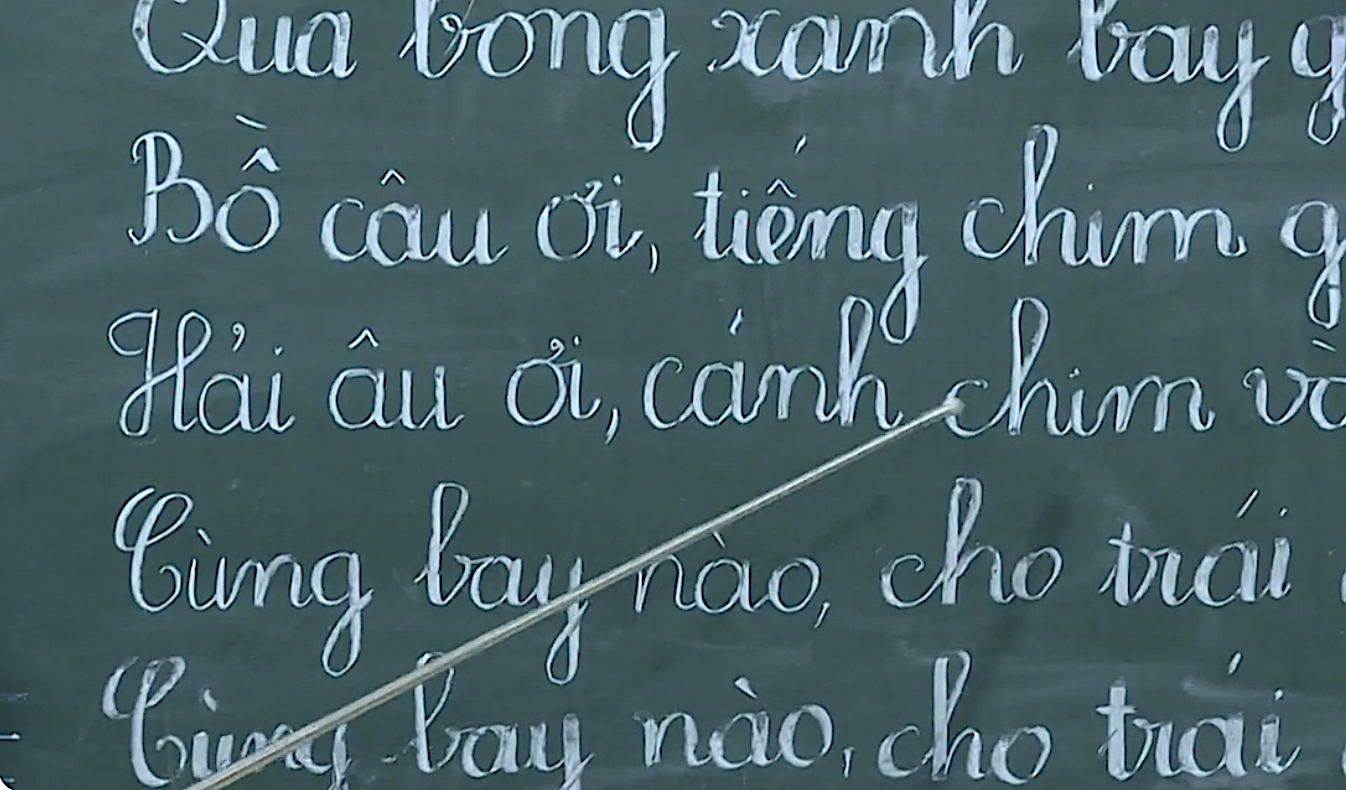 Qua bong xanh bay
Bồ câu ơi, tiếng chim
Hải âu ởi, cánh chim
Cùng bay nào, cho trái
Cùng bay nào, cho trái